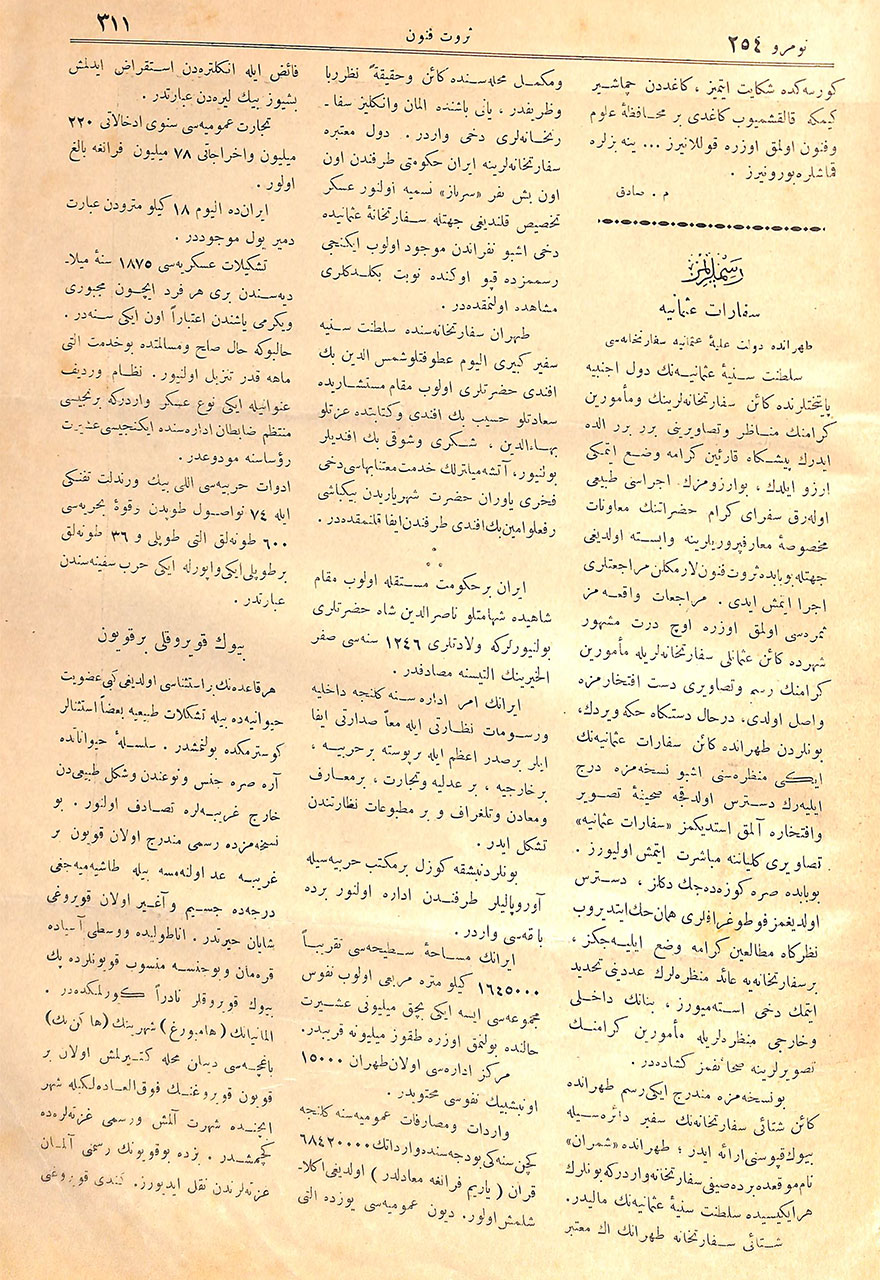 نومرو ٢٥٤
ثروت فنون
٣١١
كورسه‌كده شكايت ايتميز ، كاغددن چماشير
كيمكه قالقشميوب كاغدى بر محافظۀ علوم
وفنون اولمق اوزره قوللانيرز ... ينه بزلره
قماشلره بورونيرز .
م . صادق
رسملريمز
سفارات عثمانيه
طهرانده دولت عليۀ عثمانيه سفارتخانه‌سى
سلطنت سنيۀ عثمانيه‌نك دول اجنبيه
پايتختلرنده كائن سفارتخانه‌لرينك ومأمورين
كرامنك مناظر وتصاويرينى برر برر الده
ايدرك پيشكاه قارئين كرامه وضع ايتمكى
ارزو ايلدك ، بوارزومزك اجراسنى طبيعى
اوله‌رق سفراى كرام حضراتنك معاونات
مخصوصۀ معارفپرورلرينه وابسته اولديغى
جهتله بوبابده ثروت فنون لازمكلن مراجعتلرى
اجرا ايتمش ايدى . مراجعات واقعه‌مز
ثمره‌سى اولمق اوزره اوچ درت مشهور
شهرده كائن عثمانلى سفارتخانه‌لريله مأمورين
كرامنك رسم وتصاويرى دست افتخارمزه
واصل اولدى، درحال دستكاه حكه ويردك،
بونلردن طهرانده كائن سفارات عثمانيه‌نك
ايكى منظره‌سنى اشبو نسخه‌مزه درج
ايليه‌رك دسترس اولدقجه صحيفۀ تصوير
وافتخاره آلمق استديكمز «سفارات عثمانيه»
تصاويرى كلياتنه مباشرت ايتمش اوليورز .
بوبابده صره كوزه‌ده‌جك دكلز ، دسترس
اولديغمز فوطوغرافلرى همان حك ايتديروب
نظركاه مطالعين كرامه وضع ايليه‌جكز ،
بر سفارتخانه‌يه عائد منظره‌لرك عددينى تحديد
ايتمك دخى استه‌ميورز ، بنانك داخلى
وخارجى منظره‌لريله مأمورين كرامنك
تصويرلرينه صحائفمز كشاده‌در .
بونسخه‌مزه مندرج ايكى رسم طهرانده
كائن شتائى سفارتخانه‌نك سفير دائره‌سيله
بيوك قپوسنى ارائه ايدر ؛ طهرانده «شمران»
نام موقعده برده صيفى سفارتخانه واردركه بونلرك
هرايكيسيده سلطنت سنيۀ عثمانيه‌نك ماليدر.
شتائى سفارتخانه طهرانك اك معتبر
ومكمل محله‌سنده كائن وحقيقةً نظرربا
وظريفدر ، يانى باشنده المان وانكليز سفا‌-
رتخانه‌لرى دخى واردر . دول معتبره
سفارتخانه‌لرينه ايران حكومتى طرفندن اون
اون بش نفر «سرباز» تسميه اولنور عسكر
تخصيص قلنديغى جهتله سفارتخانۀ عثمانيده
دخى اشبو نفراتدن موجود اولوب ايكنجى
رسممزده قپو اوكنده نوبت بكلدكلرى
مشاهده اولنمقده‌در .
طهران سفارتخانه‌سنده سلطنت سنيه
سفير كبيرى اليوم عطوفتلو شمس الدين بك
افندى حضرتلرى اولوب مقام مستشاريده
سعادتلو حسيب بك افندى وكتابتده عزتلو
بهاءالدين ، شكرى وشوقى بك افنديلر
بولنيور، آتشه‌ميليترلك خدمت معتنابهاسى دخى
فخرى ياوران حضرت شهرياريدن بيكباشى
رفعتلو امين بك افندى طرفندن ايفا قلنمقده‌در .
* * *
ايران بر حكومت مستقله اولوب مقام
شاهيده شهامتلو ناصرالدين شاه حضرتلرى
بولنيورلركه ولادتلرى ١٢٤٦ سنه‌سى صفر
الخيرينك التيسنه مصادفدر .
ايرانك امر اداره سنه كلنجه داخليه
ورسومات نظارتى ايله معاً صدارتى ايفا
ايلر برصدر اعظم ايله بر پوسته بر حربيه ،
بر خارجيه ، بر عدليه وتجارت ، بر معارف
ومعادن وتلغراف و بر مطبوعات نظارتندن
تشكل ايدر .
بونلردنبشقه كوزل بر مكتب حربيه‌سيله
آوروپاليلر طرفندن اداره اولنور برده
باقه‌سى واردر .
ايرانك مساحۀ سطحيه‌سى تقريباً
١٦٤٥٠٠٠ كيلو متره مربعى اولوب نفوس
مجموعه‌سى ايسه ايكى بچق ميليونى عشيرت
حالنده بولنمق اوزره طقوز ميليونه قريبدر.
مركز اداره‌سى اولان طهران ١٥٠٠٠
اونبشبيك نفوسى محتويدر .
واردات ومصارفات عموميه‌سنه كلنجه
كچن سنه‌كى بودجه‌سنده وارداتك ٦٨٤٢٠٠٠٠
قران ( ياريم فرانغه معادلدر ) اولديغى اكلا‌-
شلمش اولور. ديون عموميه‌سى يوزده التى
فائض ايله انكلتره‌دن استقراض ايدلمش
بشيوز بيك ليره‌دن عبارتدر .
تجارت عموميه‌سى سنوى ادخالاتى ٢٢٠
ميليون واخراجاتى ٧٨ ميليون فرانغه بالغ
اولور .
ايران‌ده اليوم ١٨ كيلو مترودن عبارت
دمير يول موجوددر .
تشكيلات عسكريه‌سى ١٨٧٥ سنۀ ميلا‌-
ديه‌سندن برى هر فرد ايچون مجبورى
ويكرمى ياشندن اعتباراً اون ايكى سنه‌در .
حالبوكه حال صلح ومسالمتده بوخدمت التى
ماهه قدر تنزيل اولنيور . نظام ورديف
عنوانيله ايكى نوع عسكر واردركه برنجيسى
منتظم ضابطان اداره‌سنده ايكنجيسى عشيرت
رؤساسنه مودوعدر .
ادوات حربيه‌سى اللى بيك ورندلت تفنكى
ايله ٧٤ نواصول طوپدن رقوۀ بحريه‌سى
٦٠٠ طونه‌لق التى طوپلى و ٣٦ طونه‌لق
بر طوپلى ايكى واپورله ايكى حرب سفينه‌سندن
عبارتدر .
بيوك قويروقلى بر قويون
هر قاعده‌نك براستثناسى اولديغى كبى عضويت
حيوانيه‌ده بيله تشكلات طبيعيه بعضاً استثنالر
كوسترمكده بولنمشدر . سلسلۀ حيواناتده
آره صره جنس ونوعندن وشكل طبيعى‌دن
خارج غريبه‌لره تصادف اولنور . بو
نسخه‌مزده رسمى مندرج اولان قويون بر
غريبه عد اولنه‌مسه بيله طاشيه‌ميه‌جغى
درجه‌ده جسيم وآغير اولان قويروغى
شايان حيرتدر . اناطوليده ووسطى آسياده
قره‌مان وبوجنسه منسوب قويونلرده پك
بيوك قويروقلر نادراً كورلمكده‌در .
المانيانك (هامبورغ) شهرينك (هاكن‌بك)
باغچه‌سى دينان محله كتيرلمش اولان بر
قويون قويروغنك فوق‌العاده‌لكيله شهر
ايچنده شهرت آلمش ورسمى غزته‌لره‌ده
كچمشدر . بزده بوقويونك رسمنى آلمان
غزته‌لرندن نقل ايديورز . كندى قويروغى